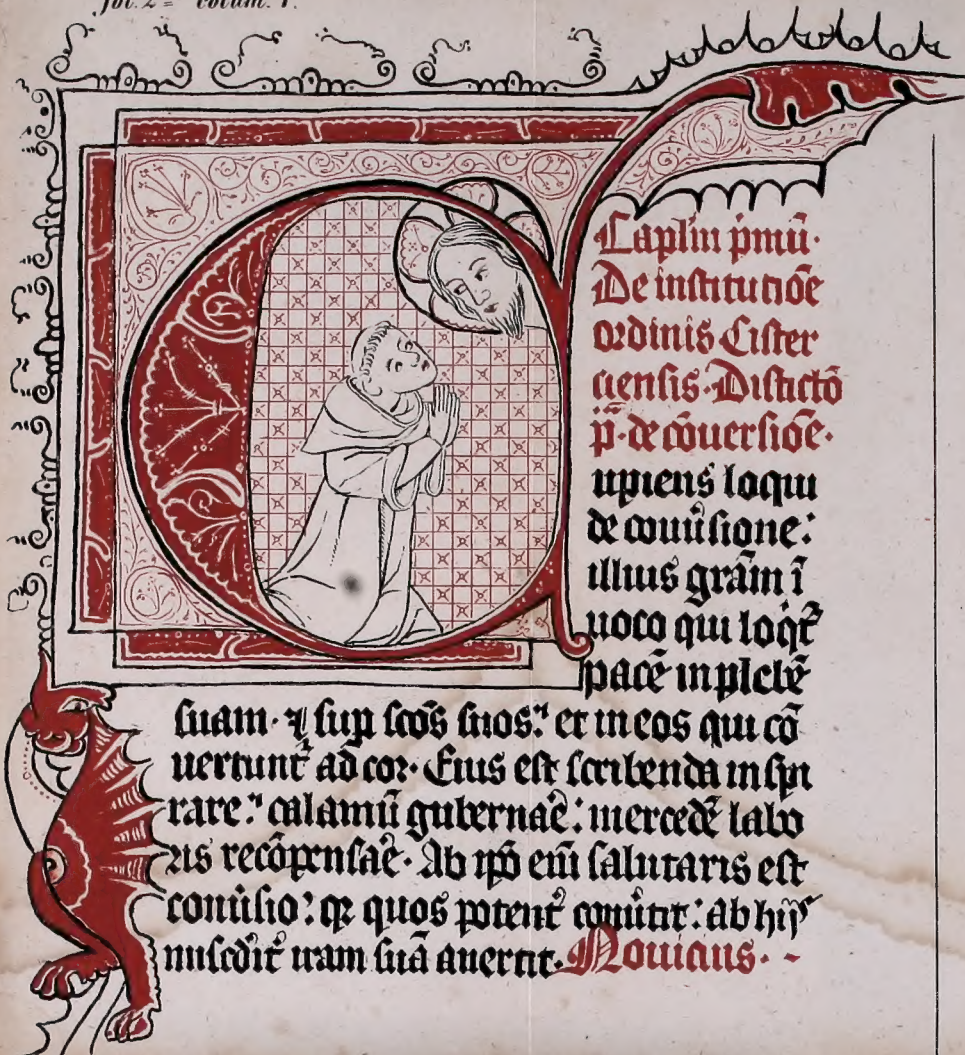 fol. 2 = colum. 1.
Caplm p̄mū·
De institutiōe
ordinis Cister
ciensis· Distictō
p̄· de cōuersiōe·
upiens loqui
de conuͥsione:
illius grām ī
uoco qui loqͭr
pacē in plebē
suam· ⁊ sup scōs suos: et in eos qui cō
uertuntᷣ ad cor· Eius est scribenda inspi
rare: calamū gubernaē: mercedē labo
ris recōpensaē· Ab ip̄o eīm salutaris est
conuͥsio: qꝛ quos potentᷣ conuͥtit: ab hijs
miscd̓itᷣ iram suā auertit· Nouicius·